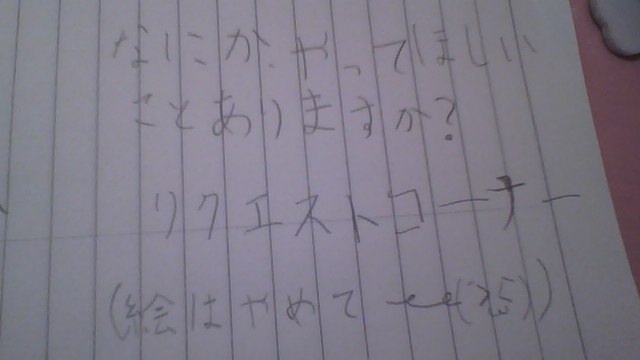 なにか、やってほしい
ことありますか?
リクエストコーナー
(絵はやめて